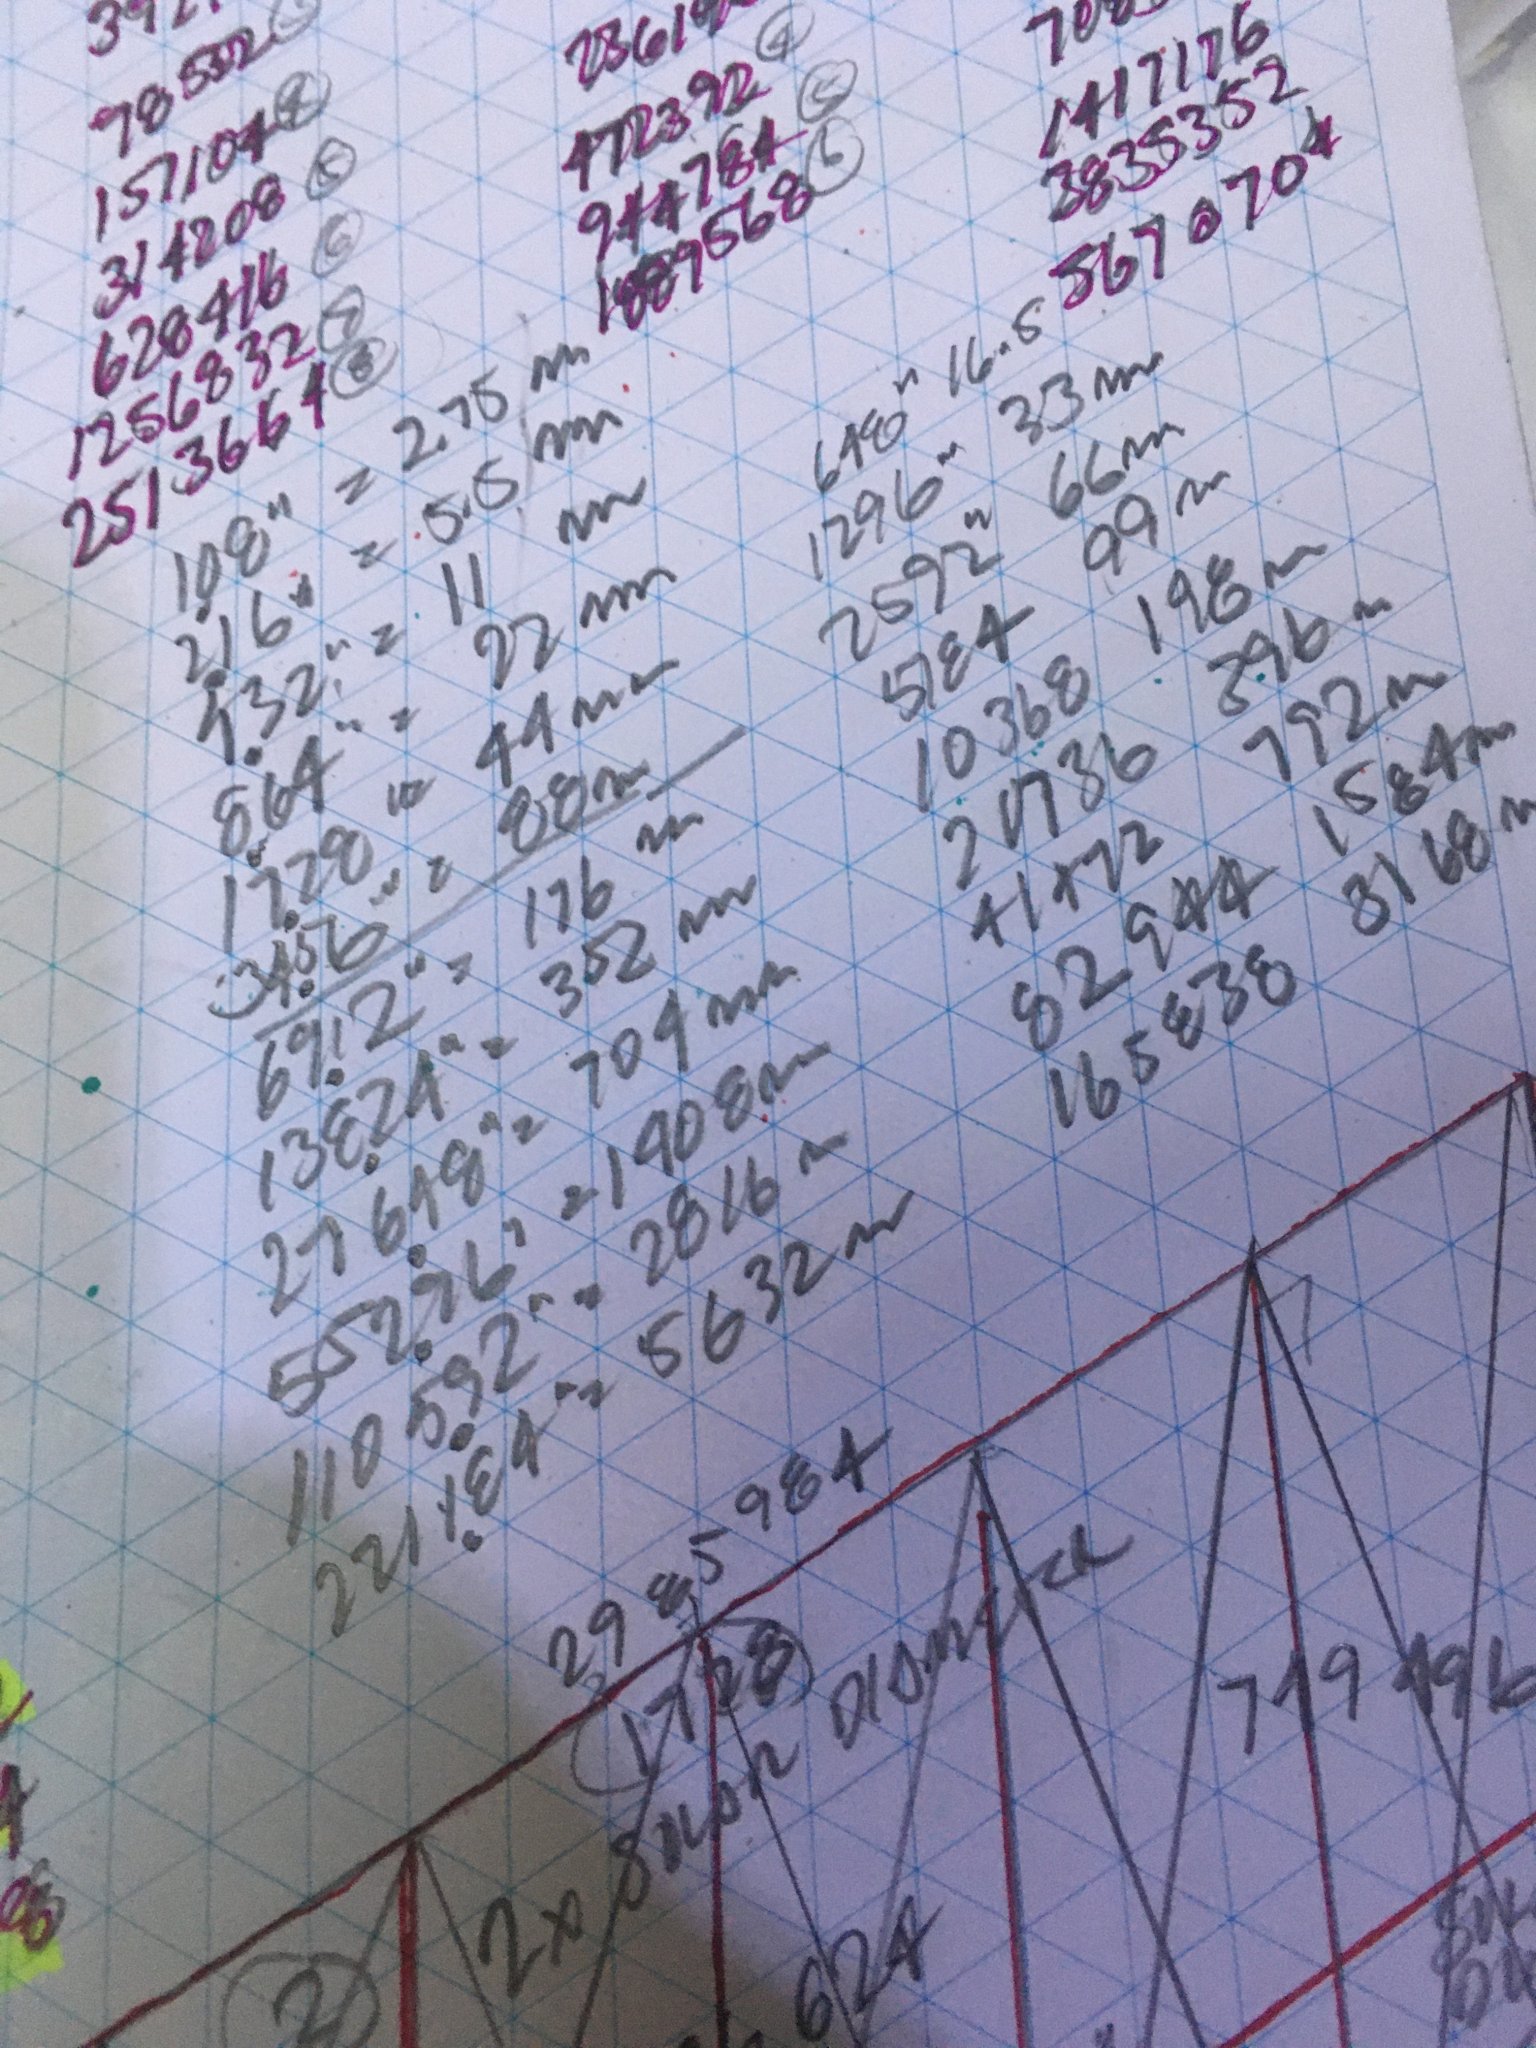 78532
157104 8
314208 5
628416 6
1256832
2513664 8
472392 4
944784 5
1889568 6
1417176
3835352
5670704
108" = 2.75 m
216" = 5.5 m
432" = 11 m
864" = 22 m
1728" = 44 m
3456" = 88 m
6912" = 176 m
13824" = 352 m
27648" = 704 m
55296" = 1408 m
110592" = 2816 m
221184" = 5632 m
648" 16.5
1296" 33 m
2592" 66 m
5184 99 m
10368 198 m
20736 396 m
41472 792 m
82944 1584 m
165838 3168 m
2985984
1728
2 2x SOLAR
749496
624